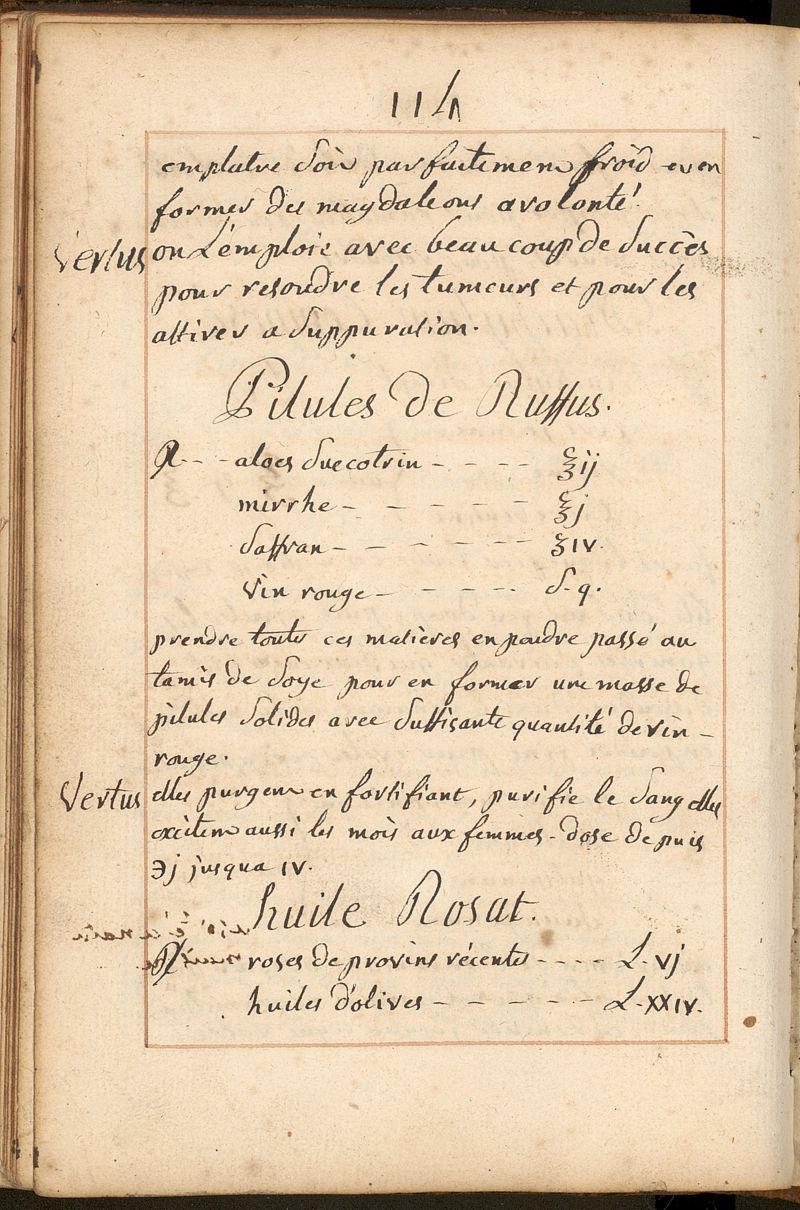 114
emplatre soit parfaitement froid et en
former des magdaleons a volonté.
Vertus on L'emploie avec beaucoup de succès
pour resoudre les tumeurs et pour les
attirer a suppuration.
Pilules de Ruffus.
℞ - - aloes suecotrin - - - - ℥ij
mirrhe - - - - - - ℥j
saffran - - - - - - ʒiv.
vin rouge - - - - - s. q.
prendre toutes ces matieres en poudre passé au
tamis de soye pour en former une masse de
pilules solides avec suffisante quantité de vin -
rouge.
Vertus elles purgent en fortifiant, purifie le sang elles
excitent aussi les mois aux femmes - dose depuis
℈j jusqua iv.
huile Rosat.
℞ roses de provins récentes - - - - L. vj
huiles d'olives - - - - - - L. xxiv.